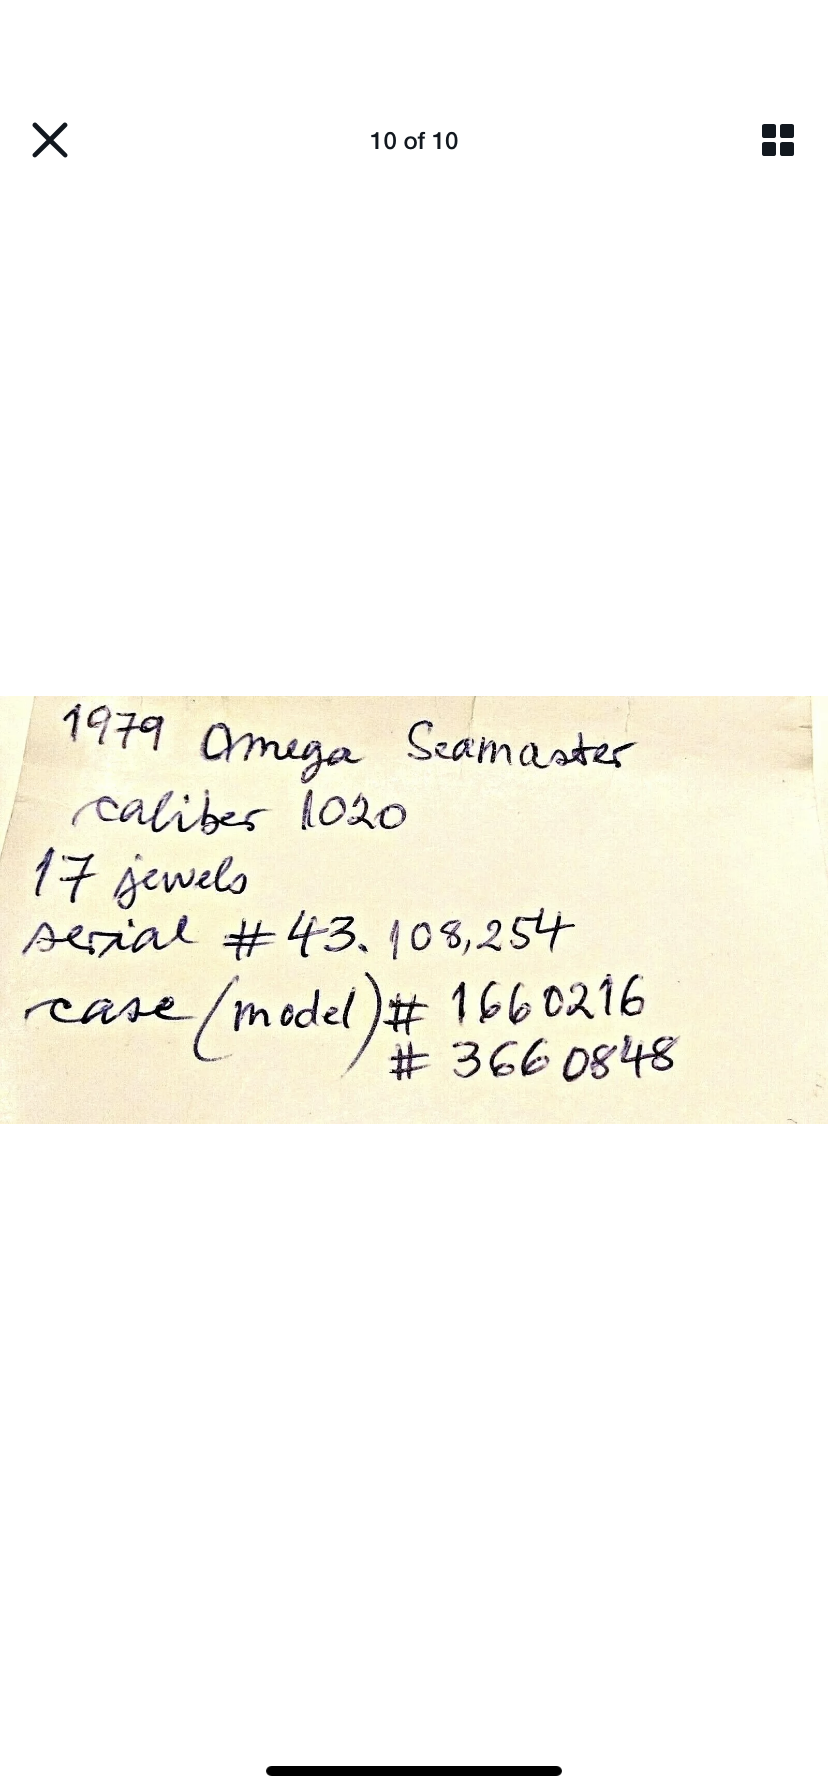 10 of 10
1979 Omega Seamaster
caliber 1020
17 jewels
serial # 43.108,254
case (model) # 1660216
# 3660848